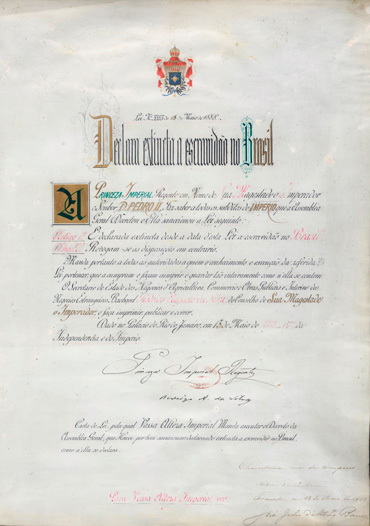 Lei N. 3353 de 13 de Maio de 1888.
Declara extincta a escravidão no Brasil
A PRINCEZA IMPERIAL Regente em Nome de Sua Magestade o Imperador
o Senhor D. PEDRO II, Faz saber a todos os subditos do IMPERIO que a Assembléa
Geral Decretou e Ella sanccionou a Lei seguinte:
Artigo 1º É declarada extincta desde a data desta Lei a escravidão no Brazil.
Artigo 2º Revogam-se as disposições em contrario.
Manda portanto a todas as autoridades a quem o conhecimento e execução da referida
Lei pertencer, que a cumpram e façam cumprir e guardar tão inteiramente como n'ella se contem.
O Secretario de Estado dos Negocios d'Agricultura, Commercio e Obras Publicas e Interino dos
Negocios Estrangeiros, Bacharel do Conselho de Sua Magestade
o Imperador, o faça imprimir, publicar e correr.
Dado no Palacio do Rio de Janeiro, em 13 de Maio de
da Independencia e do Imperio.
Princeza Imperial Regente
Rodrigo A. da Silva
Carta de Lei, pela qual Vossa Alteza Imperial Manda executar o Decreto da
Assembléa Geral, que Houve por bem sanccionar declarando extincta a escravidão no Brasil,
como n'ella se declara.
Para Vossa Alteza Imperial ver.